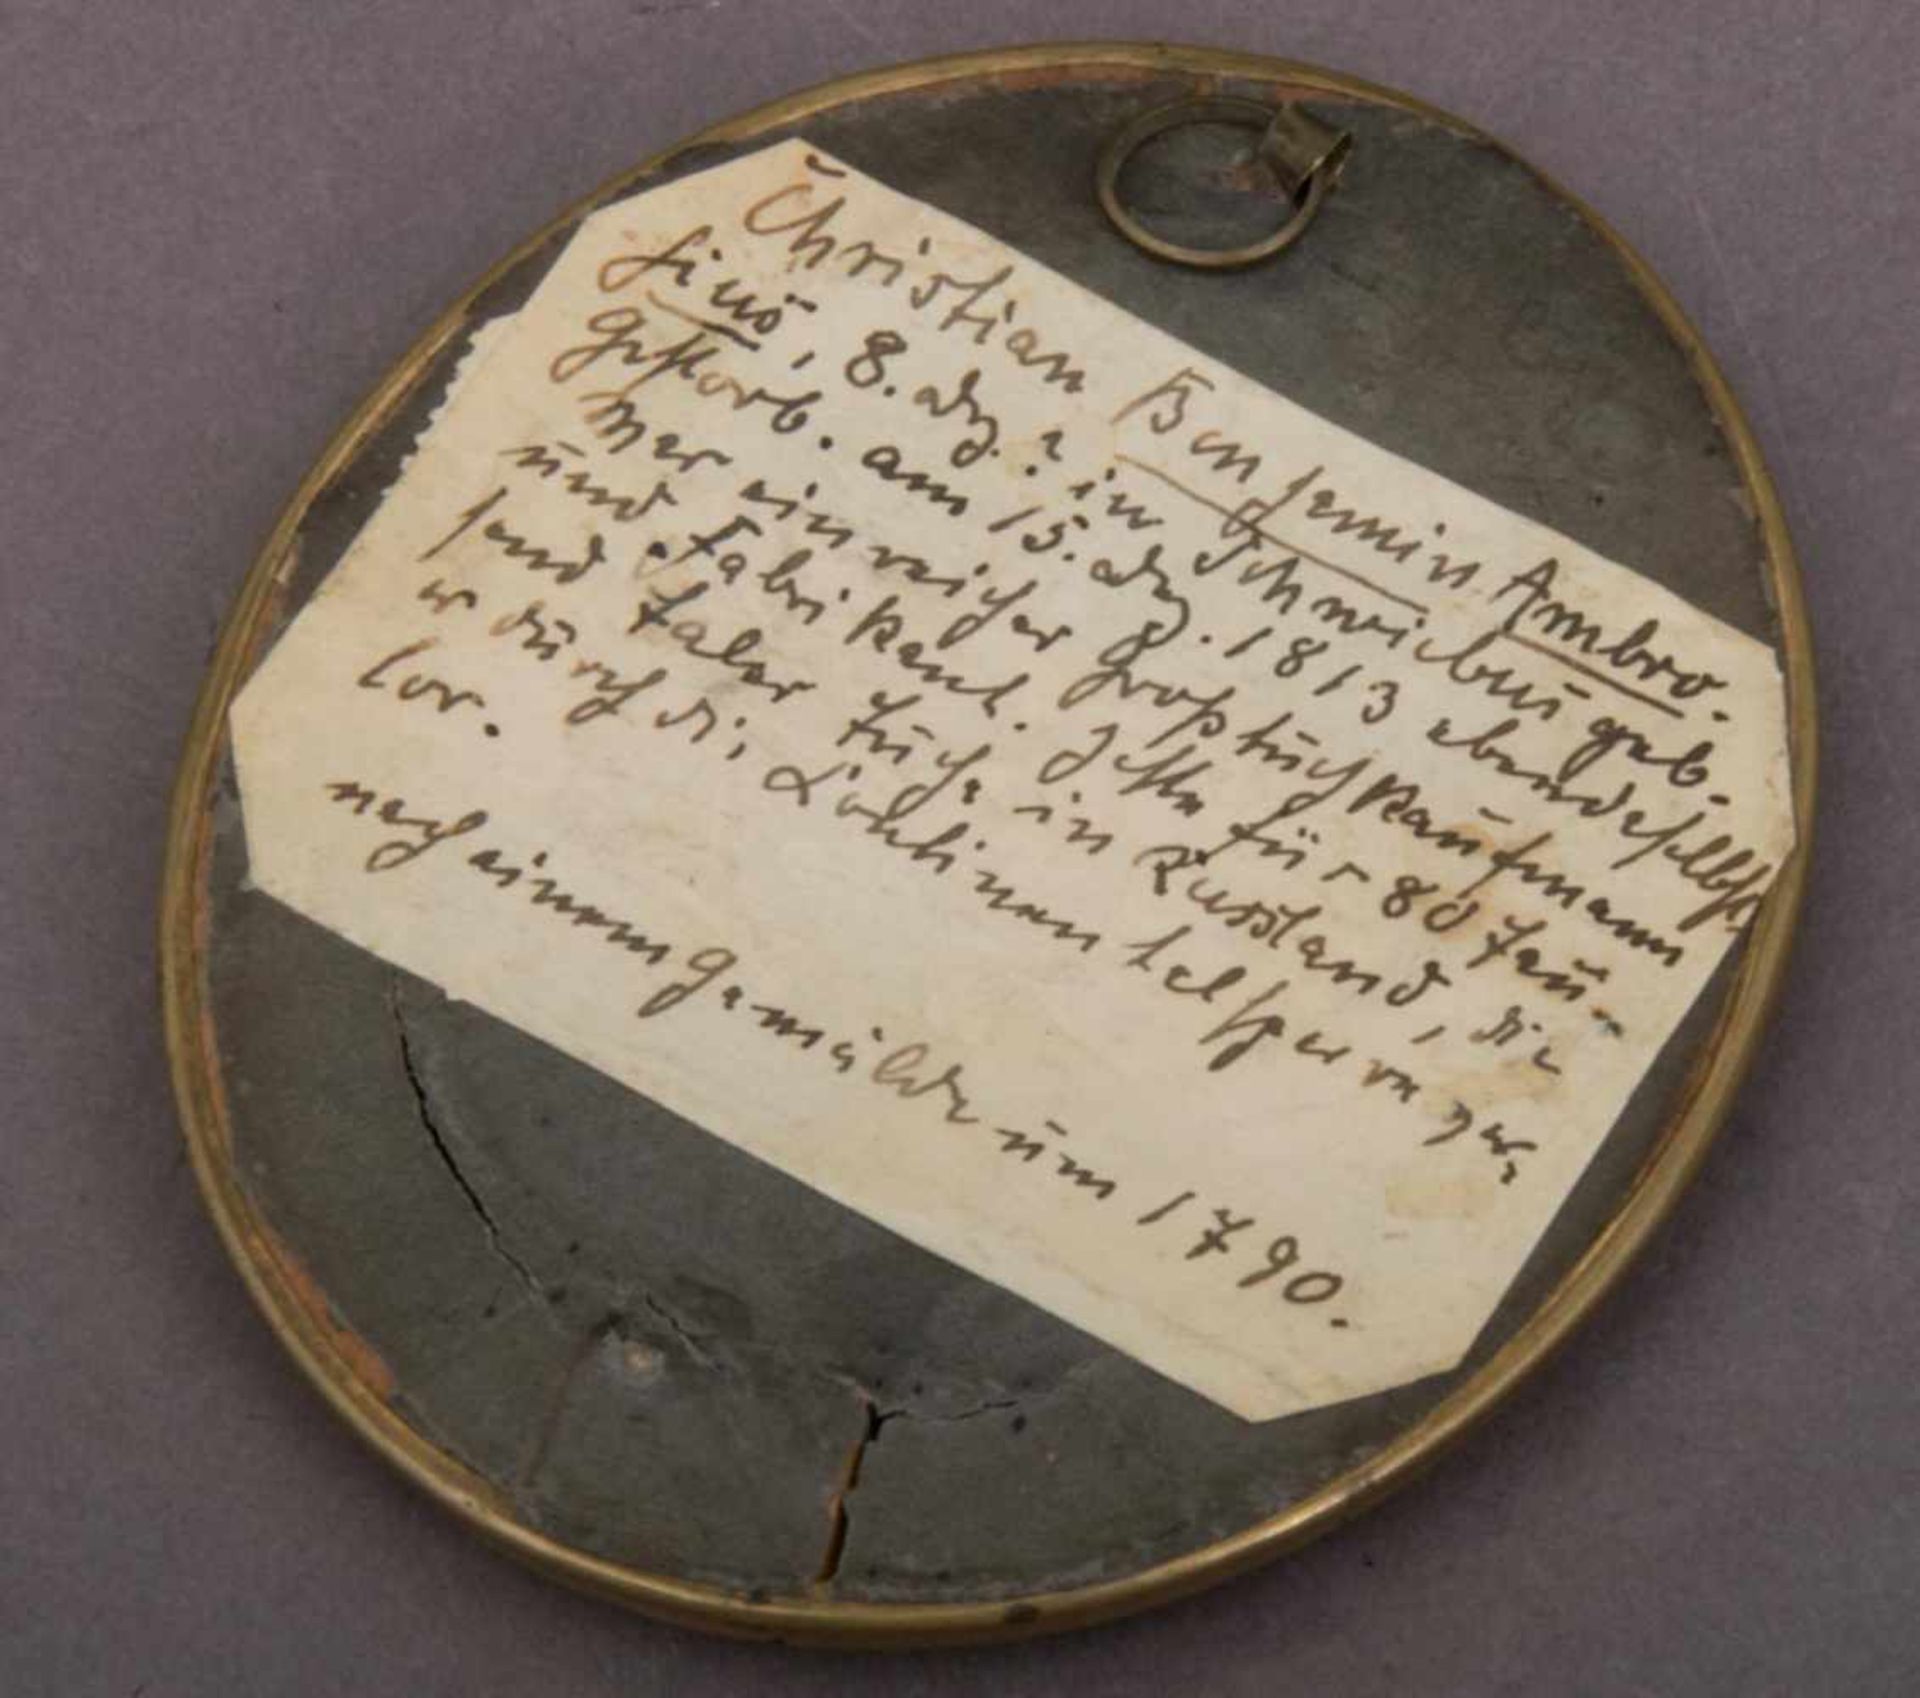 Christian Benjamin Ambro.
sius, 8. Dez. ? in Schwiebus geb.
Gestorb. am 15. Dez. 1813 ebendaselbst.
War ein reicher Großtuchkaufmann
und Fabrikant. Hatte für 80 Tau-
send Taler Tuche in Russland, die
er durch die Kontinentalsperre ver,
lor.
nach einem Gemälde um 1790.